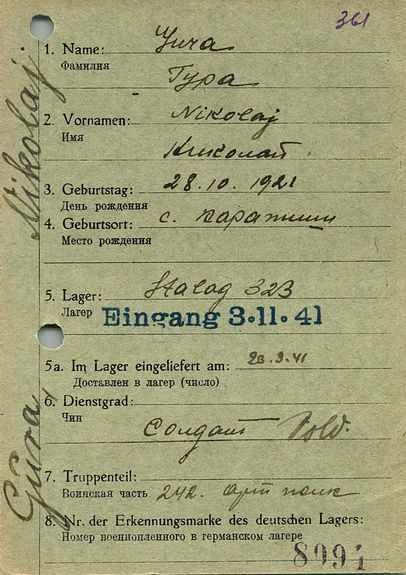 361
1. Name: Gura
Фамилия Гура
2. Vornamen: Nikolaj
Имя Николай
3. Geburtstag: 28.10.1921
День рождения
4. Geburtsort: с.
Место рождения
5. Lager: Stalag 32B
Лагер
Eingang 3.11.41
5a. Im Lager eingeliefert am:
Доставлен в лагер (число)
6. Dienstgrad:
Чин
Солдат Sold.
7. Truppenteil:
Воинская часть 242. арт полк
8. Nr. der Erkennungsmarke des deutschen Lagers:
Номер военнопленного в германском лагере
8991
Gura Nikolaj